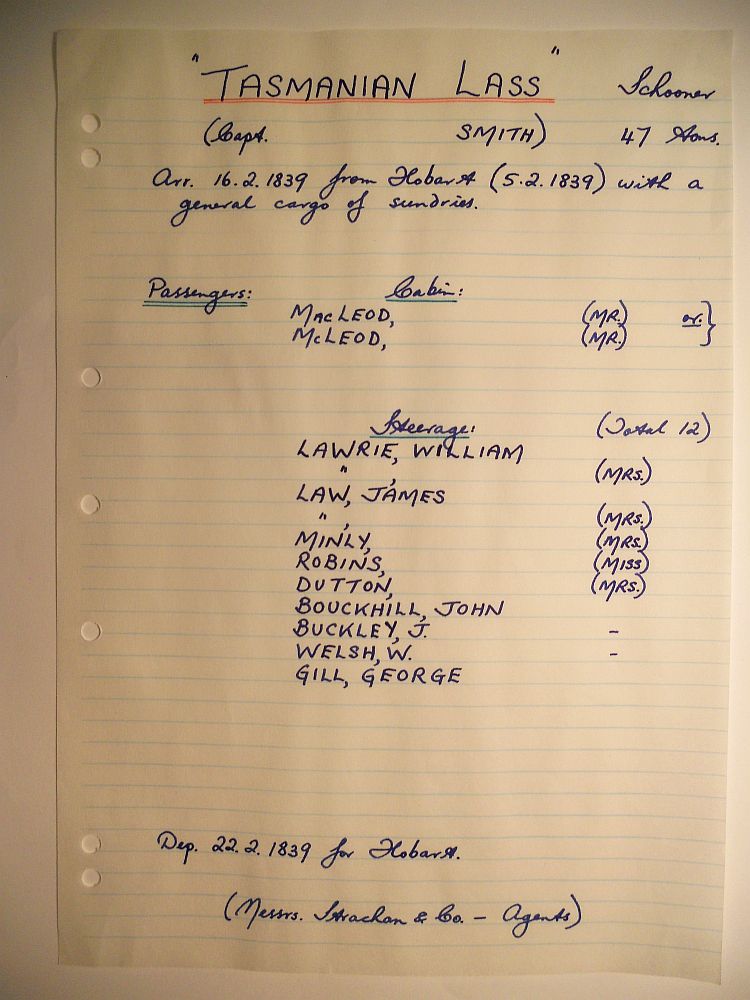 "TASMANIAN LASS" Schooner
(Capt. SMITH) 47 tons.
Arr. 16.2.1839 from Hobart (5.2.1839) with a
general cargo of sundries.
Passengers: Cabin:
MacLEOD, (MR.) or }
McLEOD, (MR.)
Steerage: (Total 12)
LAWRIE, WILLIAM
" , (MRS.)
LAW, JAMES
" , (MRS.)
MINLY, (MRS.)
ROBINS, (MISS)
DUTTON, (MRS.)
BOUCKHILL, JOHN
BUCKLEY, J. -
WELSH, W. -
GILL, GEORGE
Dep. 22.2.1839 for Hobart.
(Messrs. Strachan & Co. - Agents)